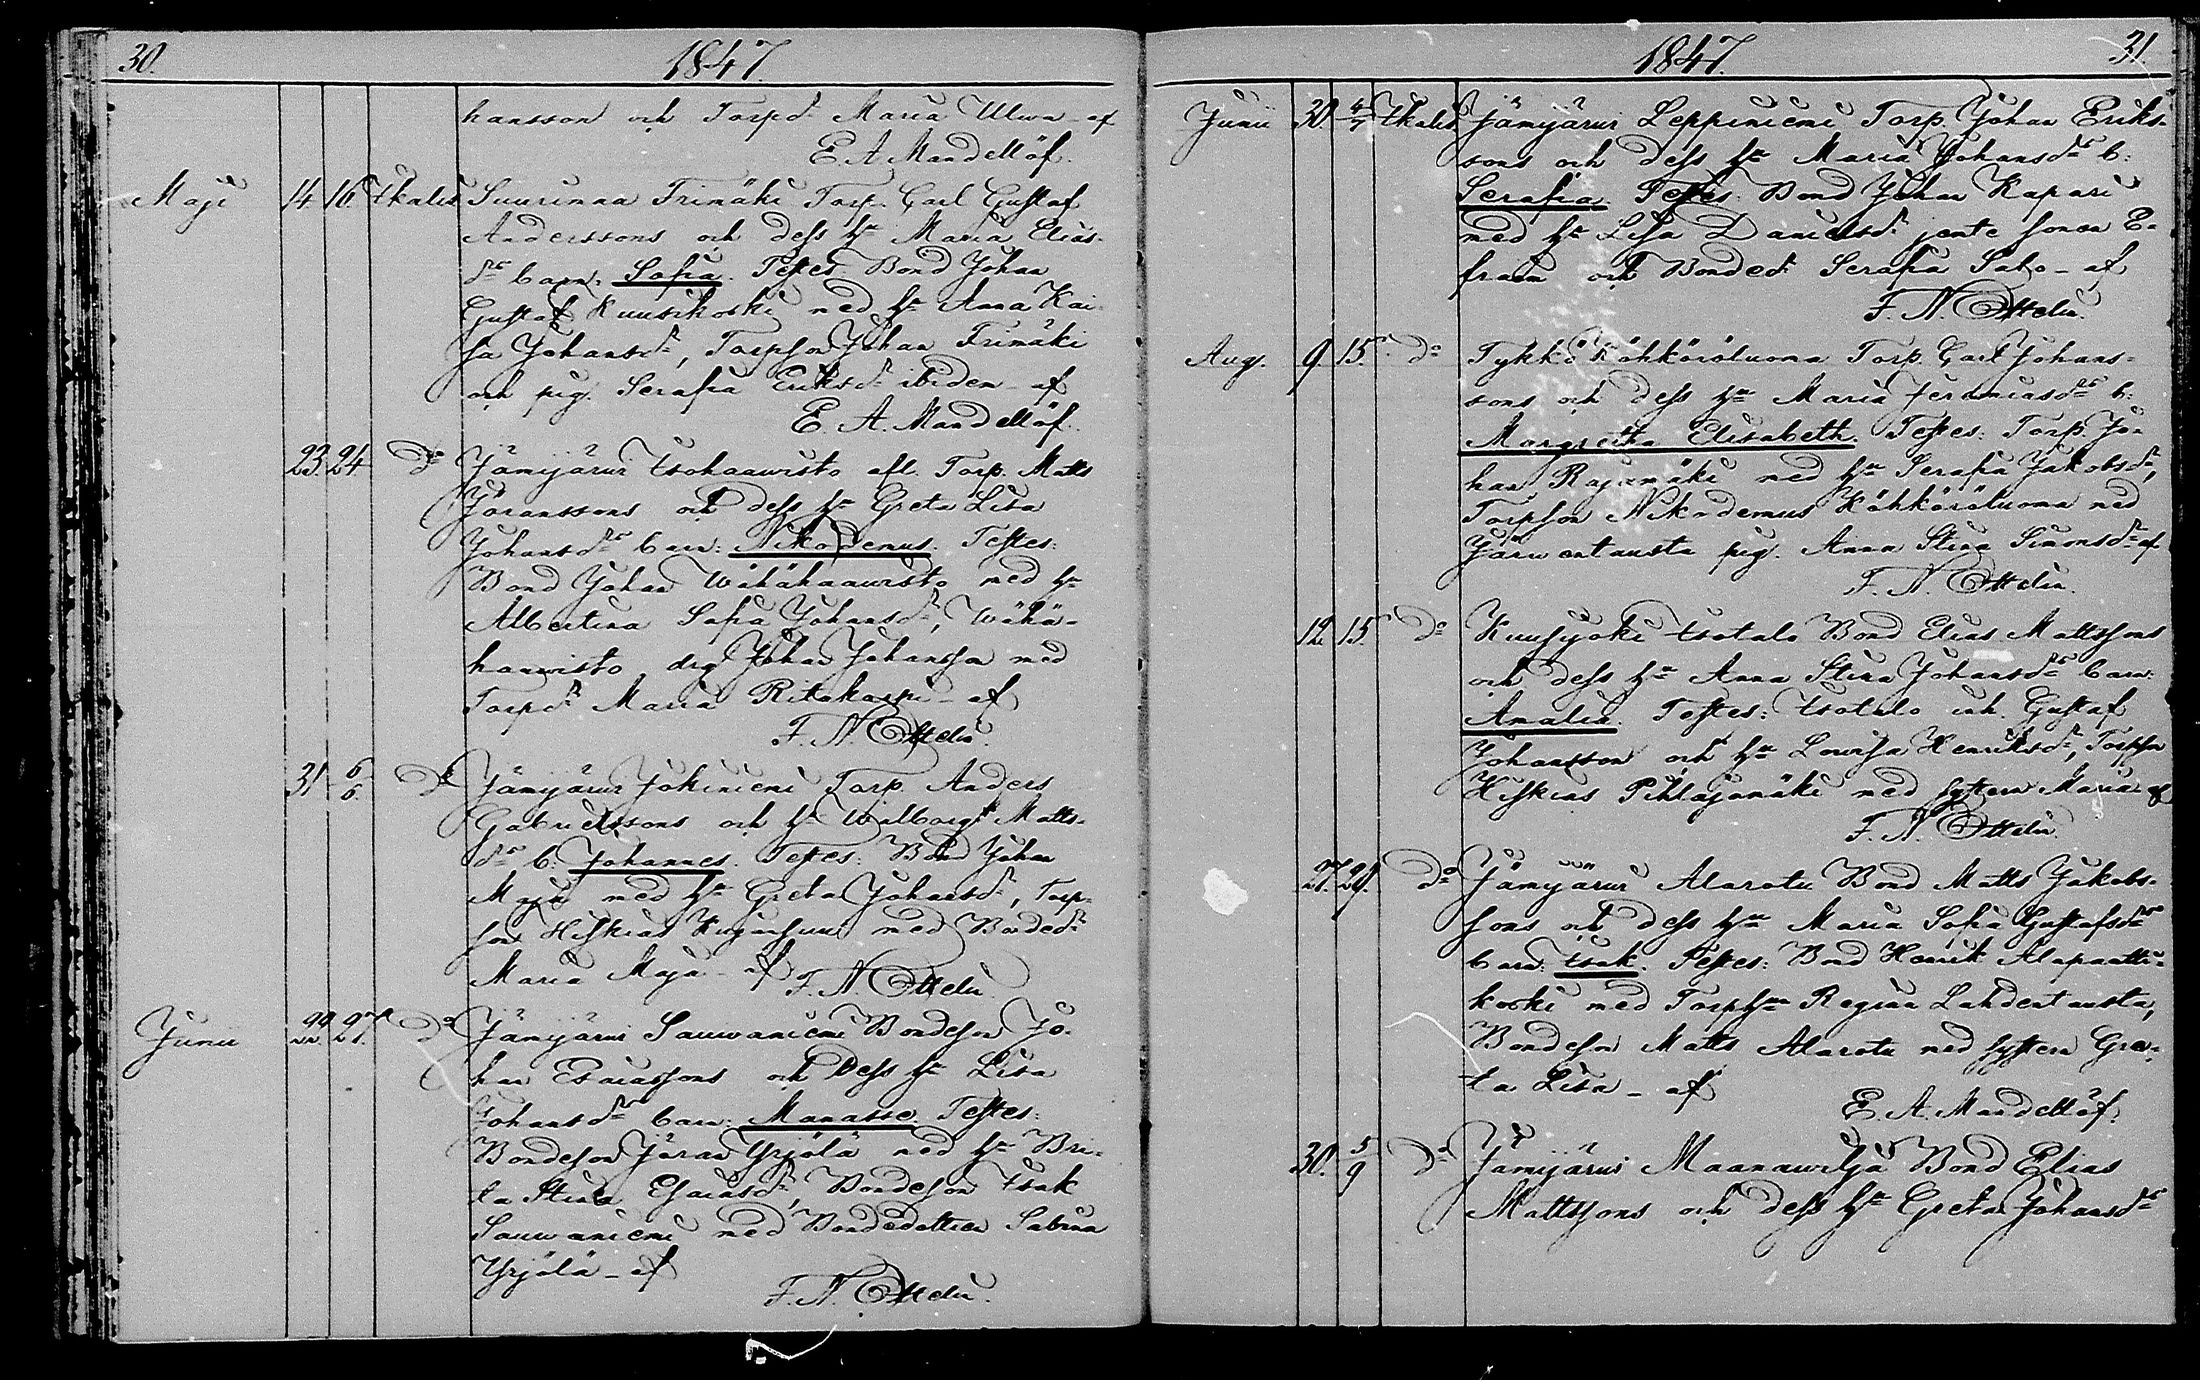 30.
1847.
hansson och Torpd. Maria Ulwa - af
E. A. Mandellöf.
Maji 14 16 Ikalis Suurimaa Trimäki Torp. Carl Gustaf
Anderssons och dess h. Maria Elias-
ds barn: Sofia. Testes: Bond Johan
Gustaf Kuusikoski med h. Anna Kai-
sa Johansd., Torpson Johan Trimäki
och pig. Serafia Eriksd. ibidem - af
E. A. Mandellöf.
23. 24. do Jämijärwi Isohaawisto afl. Torp. Matts
Göranssons och dess h. Greta Lisa
Johansds barn: Nikodemus. Testes:
Bond Johan Wähähaawisto med h.
Albertina Sofia Johansd., Wähä-
haawisto drg Johan Johansson med
Torpd. Maria Ritakorpi - af
F. N. Ottelin.
31 6/6. do Jämijärwi Jokiniemi Torp. Anders
Gabrielssons och h. Walborg Matts-
ds b: Johannes. Testes: Bond Johan
Maja med h. Greta Johansd., Torp-
son Hiskias Kujansuu med Bonded.
Maria Maja - af
F. N. Ottelin
Junii 22. 27. do Jämijärwi Sauwaniemi Bondeson Jo-
han Esaiassons och dess h. Lisa
Johansds barn: Manasse. Testes:
Bondeson Göran Yrjölä med h. Bri-
ta Stina Esaiasd., Bondeson Isak
Sauwaniemi med Bondedottren Sabina
Yrjölä - af
F. N. Ottelin.
1847.
31.
Junii 30. 4/7 Ikalis Jämijärwi Leppiniemi Torp. Johan Eriks-
sons och dess h. Maria Johansds b:
Serafia. Testes: Bond Johan Kapari
med h. Lisa Danielsd. jemte sonen E-
fraim och Bonded. Serafia Salo - af
F. N. Ottelin.
Aug. 9. 15. do Tykkö Kähköröluoma Torp. Carl Johans-
sons och dess h. Maria Jeremiasds b:
Margretha Elisabeth. Testes: Torp. Jo-
han Rajamäki med h. Serafia Jakobsd.,
Torpson Nikodemus Kähköröluoma med
Järwentausta pig. Anna Stina Simonsd. af
F. N. Ottelin.
12. 15. do Kuusijoki Isotalo Bond Elias Mattssons
och dess h. Anna Stina Johansds barn:
Amalia. Testes: Isotalo inh. Gustaf
Johansson och h. Lowisa Henriksd., Torpson
Hiskias Pihlajamäki med systern Maria af
F. N. Ottelin.
27. 29. do Jämijärwi Alarotu Bond Matts Jakobs-
sons och dess h. Maria Sofia Gustafsds
barn: Isak. Testes: Bond Henrik Alapaatti-
koski med Torph. Regina Lahdentausta,
Bondeson Matts Alarotu med systern Gre-
ta Lisa - af
E. A. Mandellöf.
30. 5/9 do Jämijärwi Maanawilja Bond Elias
Mattssons och dess h. Greta Johansds